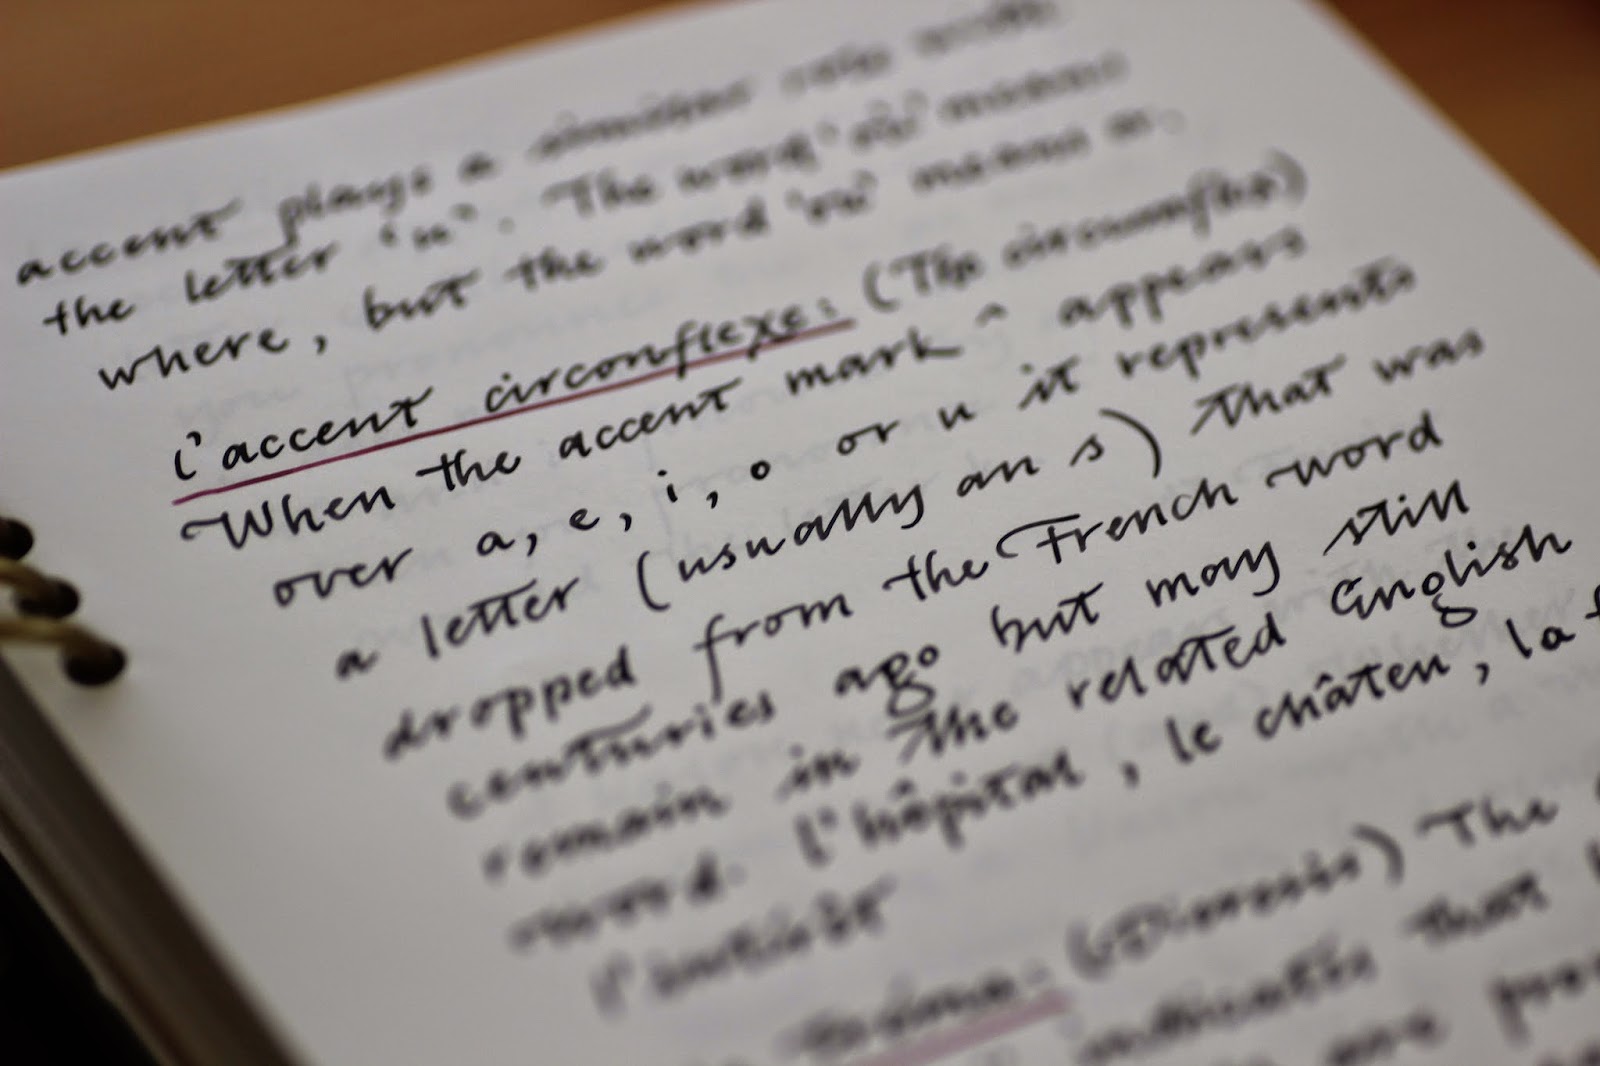 accent plays a similar role with
the letter 'u'. The word 'où' means
where, but the word 'ou' means or.
l'accent circonflexe: (The circumflex)
When the accent mark ^ appears
over a, e, i, o or u it represents
a letter (usually an s) that was
dropped from the French word
centuries ago but may still
remain in the related English
word. l'hôpital, le château, la f
l'intérêt
tréma: (Dieresis) The
indicates that
are pro